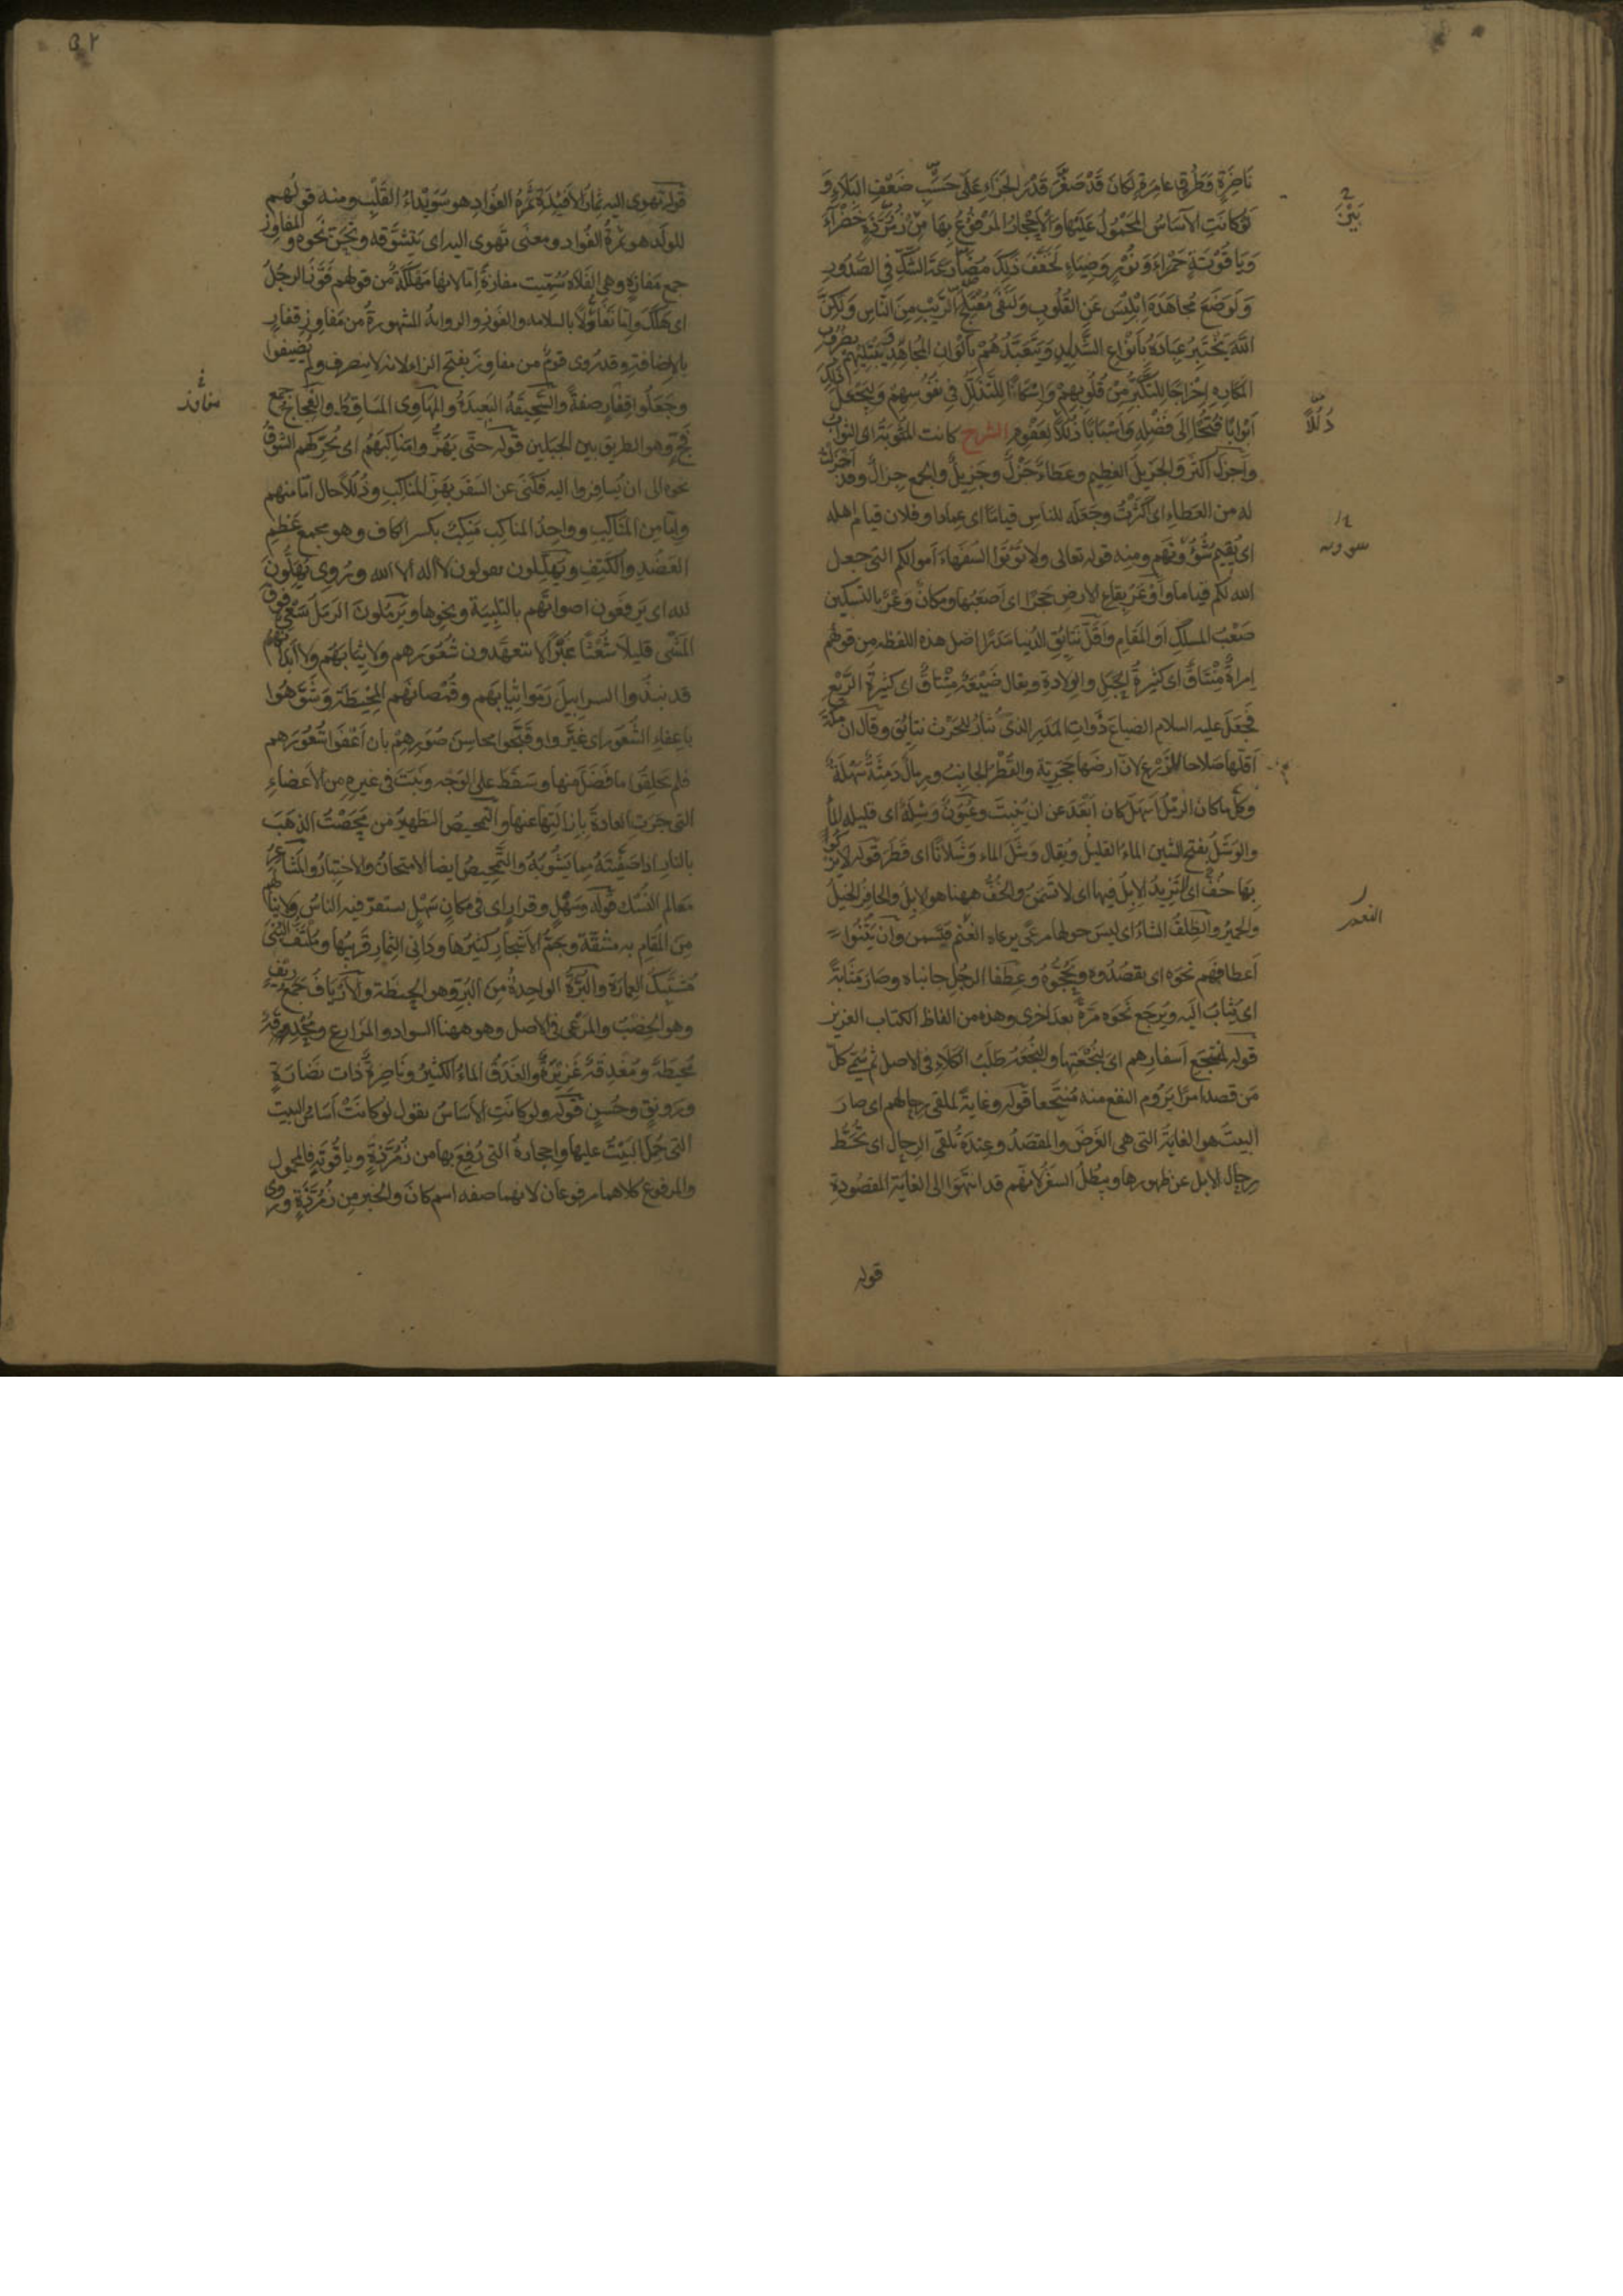 نَاضِرَةٍ وَطُرُقٍ عامِرَةٍ لَكانَ قَدْ صَغُرَ قَدْرُ الجَزاءِ عَلَى حَسَبِ ضَعْفِ البَلاءِ وَ
لَوْ كانَتِ الآسَاسُ المَحْمُولُ عَلَيْهَا وَالأَحْجارُ المَرْفُوعُ بِهَا مِنْ زُمُرُّذَةٍ خَضْرَاءَ
وَيَاقُوتَةٍ حَمْرَاءَ وَنُورٍ وَضِيَاءٍ لَخَفَّفَ ذَلِكَ مُضَارَعَةَ الشَّكِّ فِي الصُّدُورِ
وَلَوَضَعَ مُجاهَدَةَ إبْلِيسَ عَنِ القُلُوبِ وَلَنَفَى مُعْتَلِجَ الرَّيْبِ مِنَ النَّاسِ وَلَكِنَّ
اللَّهَ يَخْتَبِرُ عِبَادَهُ بِأَنْوَاعِ الشَّدَائِدِ وَيَتَعَبَّدُهُمْ بِأَلْوَانِ المُجَاهَدِ وَيَبْتَلِيهِمْ بِضُرُوبِ
المَكَارِهِ إخْرَاجًا لِلتَّكَبُّرِ مِنْ قُلُوبِهِمْ وَإِسْكَانًا لِلتَّذَلُّلِ فِي نُفُوسِهِمْ وَلِيَجْعَلَ ذَلِكَ
أَبْوَابًا فُتُحًا إلَى فَضْلِهِ وَأَسْبَابًا ذُلُلًا لِعَفْوِهِ الشرح كانت المَثُوبَةُ اى الثوابُ
وأَجْزَل أكثر والجَزيلُ العظيم وعَطاءٌ جَزْلٌ وجَزِيلٌ والجمع جِزالٌ وقد أَجْزَلتُ
له من العَطاءِ اى أَكْثَرْتُ وجَعَلَه للناس قيامًا اى عِمادا وفلان قيام اهله
اى يُقيم شُئُونَهم ومنه قوله تعالى ولا تُؤْتُوا السُّفَهاءَ أموالكم التى جعل
الله لكم قياما وأَوْعَرُ بِقاعِ الارضِ حَجَرًا اى أَصْعَبُها ومكانٌ وَعْرٌ بالتسكين
صَعْبُ المسلكِ او المُقامِ وأَقَلُّ نَتائِقِ الدُّنيا مَدَرًا اصل هذه اللفظه من قولهم
امراةٌ مِنْتاقٌ اى كثيرةُ الحَبَلِ والوِلادةِ ويقال ضَيْعَةٌ مِنْتاقٌ اى كثيرةُ الرَّيْعِ
فجَعَل عليه السلام الضياعَ ذَواتِ المَدَرِ التى تُثارُ للحَرْث نتائقَ وقال ان مكة
أقلُّها صَلاحا للزَّرْعِ لانّ ارضَها حَجَرِيّة والقُطْرُ الجانِبُ ورِمالٌ دَمِثَةٌ سَهْلةٌ
وكلّما كان الرَّمْلُ أَسْهَلَ كان أَبْعَدَ عن ان يُنْبِتَ وعُيُونٌ وَشِلَةٌ اى قليله الماءِ
والوَشَلُ بفتح الشين الماءُ القليلُ ويُقال وَشَلَ الماء وَشَلانًا اى قَطَرَ قوله لا يَزْكُو
بِهَا خُفٌّ اى لا تَزِيدُ الإبِلُ فيها اى لا تَسْمَنُ والخُفُّ ههنا هو الإبِلُ والحافِرُ الخَيْلُ
والحَميرُ والظِّلفُ الشاءُ اى ليس حولها مَرْعًى يرعاه الغَنَم فتَسمن وأن يَثْنُوا
أَعطافَهم نَحْوَه اى يَقصُدُوه ويَحُجُّوهُ وعِطفا الرجُلِ جانباه وصَارَ مَثابةً
اى يُثابُ اليه ويُرجَع نَحْوَه مَرَّةً بعد أخرى وهذه من الفاظ الكتاب العزيز
قوله لمُنْتَجَعِ أَسفارِهم اى لِنُجْعَتِها والنُّجْعَةُ طَلَبُ الكَلاءِ فى الاصل ثم سُمّى كلُّ
مَن قَصد امرًا يَرُوم النفع منه مُنْتَجِعا قوله وغايةً لمُلْقى رِحالهم اى صارَ
البيتُ هو الغايةُ التى هى الغَرَضُ والمَقصَدُ وعِندَه تُلقَى الرِحال اى تُحَطُّ
رِحالُ الابل عن ظهورها ويَبْطُلُ السفَرُ لانّهم قد انتَهَوا الى الغاية المقصودةِ
قوله
بَيْنَ
ذُلُلًا
سوره
النعم
٥٢
قوله تهوى اليه ثِمارُ الأَفئِدَةِ ثَمَرَةُ الفُؤادِ هو سُوَيْداءُ القَلْبِ ومنه قولُهم
للولَدِ هو ثَمَرةُ الفُوادِ ومعنَى تَهوى اليه اى تَتَشَوّقه وتَحِنّ نَحْوه والمفاوِز
جمع مَفازةٍ وهى الفَلاة سُمِّيت مفازةً إمّا لانها مَهْلَكَةٌ من قولهم فَوَّزَ الرجُلُ
اى هَلَكَ وإمّا تَفَاؤُلًا بالسلامه والفَوْزِ والروايةُ المشهورةُ من مَفاوِزِ قِفارٍ
بالإضافة وقد رَوى قومٌ من مفاوزَ بفتح الزاء لانه لا ينصرف ولم يُضيفوا
وجَعَلُوا قِفارٍ صفةً والسَّحِيقَةُ البَعيدةُ والمَهَاوِى المَسَاقِطُ والفِجاجُ جمع
فَجٍّ وهو الطريق بين الجبلين قوله حتّى يَهُزُّوا مناكِبَهُم اى يُحَرِّكهم الشوقُ
نحوه الى ان يُسافِروا اليه فكَنَى عن السَفَر بهَزِّ المَناكِبِ وذُلُلًا حال امّا منهم
وإمّا مِن المَناكِبِ وواحِدُ المناكِب مَنكِبٌ بكسر الكاف وهو مجمع عَظْمِ
العَضُدِ والكَتِفِ ويُهَلِّلون يقولون لا اله الا الله ورُوِى يُهِلُّونَ
لله اى يَرفَعُون اصواتَهُم بالتَّلْبِيَة ونحوِها ويَرمُلونَ الرَمَلُ سَعْىٌ فوق
المَشْىِ قليلًا شُعْثًا غُبْرًا لا يتعهّدون شُعُورَهم ولا ثيابَهم ولا أَبْدانَهُم
قد نبذُوا السرابِيلَ رَمَوا ثِيابَهم وقُمْصانَهم المَخِيطَةَ وشَوَّهُوا
باِعفاءِ الشُّعُور اى غَيَّروا وقَبَّحوا محاسِنَ صُوَرِهِمْ بان اَعْفَوا شُعُورَهم
فلم يَحلِقُوا ما فَضَلَ منها وسَقَطَ على الوَجْه ونَبَتَ فى غيرِه من الأعضاءِ
التى جَرَتِ العادةُ بإزالَتِها عنها والتَّمحِيصُ التطهيرُ من مَحَّصْتُ الذهَبَ
بالنارِ اذا صَفَّيتَهُ مما يَشُوبُهُ والتَّمحِيصُ ايضا الامتحانُ والاختِبارُ والمَشاعِرُ
مَعالم النُّسُك قوله وسَهْلٍ وقرارٍ اى فى مكانٍ سَهْلٍ يستقرّ فيه الناسُ ولا ينالُهم
مِن المُقامِ به مشقّة وجَمّ الأشجارِ كثيرُها ودَانِى الثِّمارِ قريبُها ومُلْتَفّ البُنَى
مُشتَبِكُ العِمارَة والبُرَّةُ الواحِدةُ مِنَ البُرِّ وهو الحِنطَة والأَرْيافُ جمع رِيفٍ
وهو الخِصْبُ والمَرْعَى فى الاصل وهو ههنا السوادُ والمَزارِع ومُحْدِقَة
مُحيطة ومُغْدِقَة غَزِيرَةٌ والغَدَقُ الماءُ الكثيرُ ونَاضِرَةٌ ذات نَضَارَةٍ
ورَونقٍ وحُسنٍ قوله ولو كانَتِ الأَساسُ يقول لو كانَتْ أساسُ البيت
التى حُمِلَ البَيْتُ عليها واحجارهُ التى رُفِعَ بها من زُمُرُّذةٍ وياقُوتَةٍ فالمحمول
والمرفوع كلاهما مرفوعان لانهما صفه اسم كان والخبر مِن زُمُرُّذَةٍ ورُوِى
مفاوز